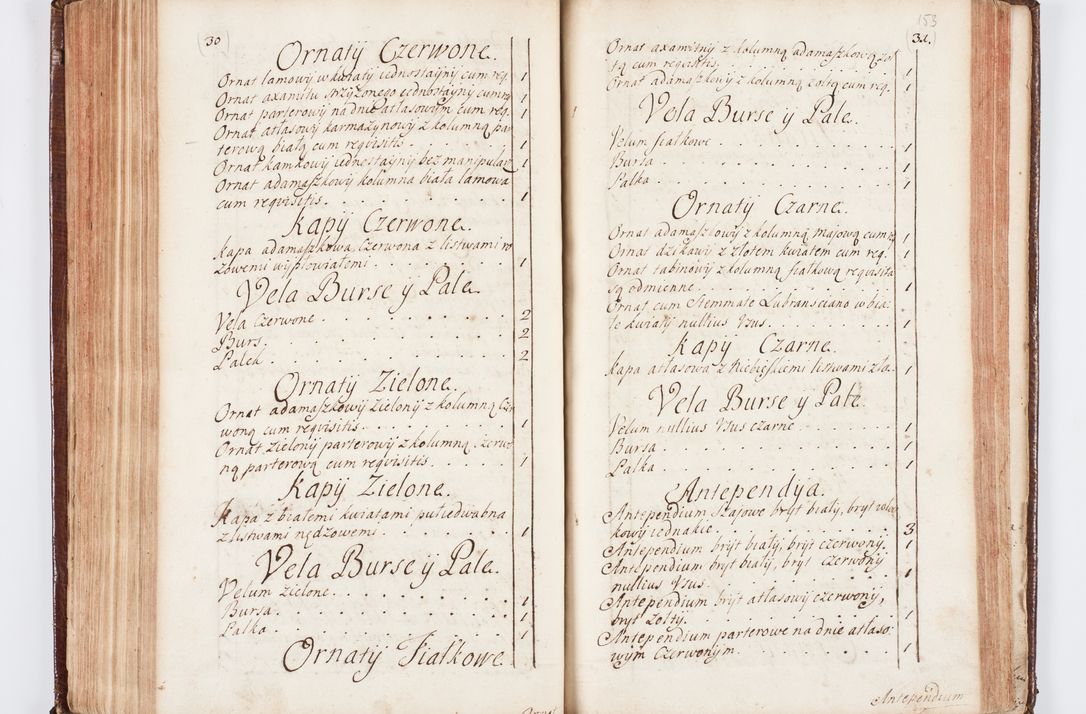 30
Ornatÿ Czerwone.
Ornat lamowÿ w kwiatÿ iednostaÿnÿ cum req. 1
Ornat axamitu strzÿżonego iednostaÿnÿ cum req 1
Ornat parterowÿ na dnie atłasowÿm cum req. 1
Ornat atłasowÿ karmazÿnowÿ z kolumną par
terową białą cum reqvisitis. 1
Ornat kamkowÿ iednostaÿnÿ bez manipularz 1
Ornat adamaszkowÿ kolumna biała lamowa
cum reqvisitis. 1
Kapÿ Czerwone.
Kapa adamaszkowa Czerwona z listwami ro
zowemi wÿpłowiałemi. 1
Vela Burse y Pale.
Vela Czerwone. 2
Burs. 2
Palek. 2
Ornatÿ Zielone.
Ornat adamaszkowÿ Zielonÿ z kolumną Czer
woną cum reqvisitis. 1
Ornat Zielonÿ parterowÿ z kolumną Czerwo
ną parterową cum reqvisitis. 1
Kapÿ Zielone.
Kapa z białemi kwiatami pułiedwabna
z listwami nędzowemi. 1
Vela Burse ÿ Pale.
Velum zielone. 1
Bursa. 1
Palka. 1
Ornatÿ Fiałkowe.
153
31.
Ornat axamitnÿ z kolumną adamaszkową żoł
tą cum reqvisitis. 1
Ornat adamaszkowÿ z kolumną żołtą cum req. 1
Vela Burse ÿ Pale.
Velum fiałkowe. 1
Bursa. 1
Palka. 1
Ornatÿ Czarne.
Ornat adamaszkowÿ z kolumną majową cum rq 1
Ornat dzikawÿ z złotem kwiatem cum req. 1
Ornat tabinowÿ z kolumną fiałkową reqvisita
są odmienne. 1
Ornat cum Stemmate Lubransciano w bia=
łe kwiatÿ nullius Vsus. 1
Kapÿ Czarne.
Kapa atłasowa z Niebieskiemi listwami zła. 1
Vela Burse y Pale.
Velum nullius Vsus czarne 1
Bursa. 1
Palka. 1
Antependÿa.
Antependium Stajowe brÿt białÿ, brÿt
kowÿ iednakie. 3
Antependium brÿt białÿ, brÿt czerwonÿ. 1
Antependium brÿt białÿ, brÿt czerwonÿ
nullius Vsus. 1
Antependium brÿt atłasowÿ czerwonÿ,
brÿt żołtÿ. 1
Antependium parterowe na dnie atłaso=
wÿm Czerwonÿm. 1
Antependium